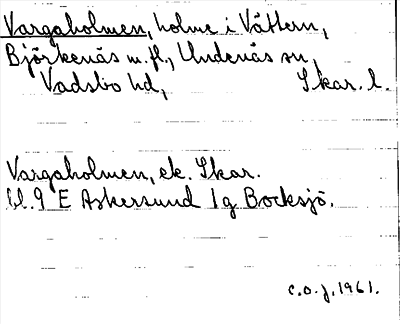 Vargaholmen, holme i Vättern,
Björkenäs m.fl., Undenäs sn,
Vadsbo hd, Skar. l.
Vargaholmen, ek. Skar.
bl. 9 E Askersund 1g Bocksjö.
c.o.j. 1961.